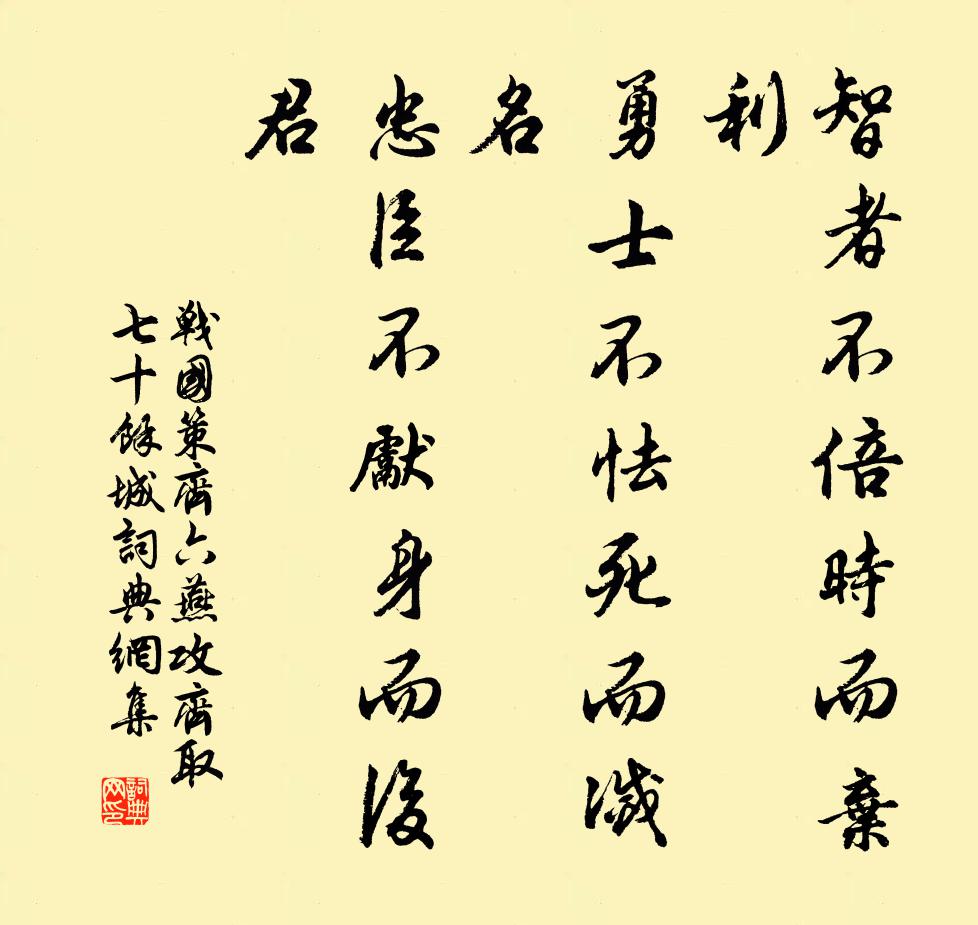 智者不倍時而棄
利
勇士不怯死而滅
名
忠臣不獻身而後
君
戰國策齊六燕攻齊取
七十餘城詞典網集
詞典
网印